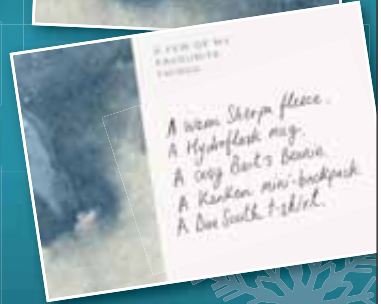 A FEW OF MY
FAVOURITE
THINGS
A warm Sherpa fleece.
A Hydroflask mug.
A cosy Barts Beanie
A Kanken mini-backpack
A Due South t-shirt.